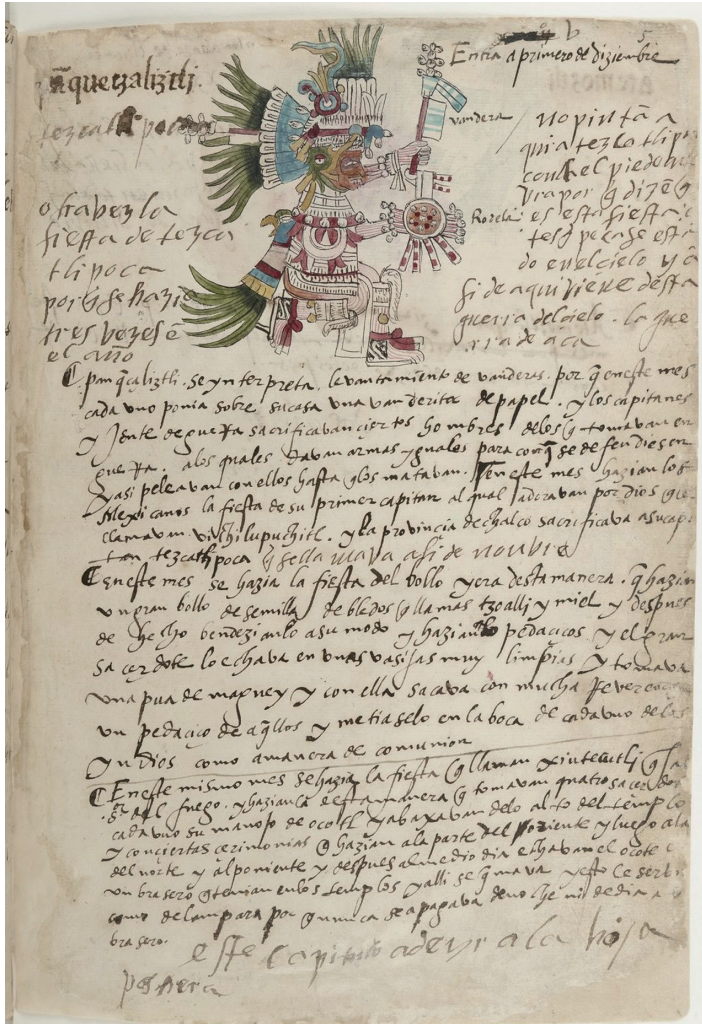 5
Entra a primero de diziembre
panquetzaliztli.
tezcatlipoca
vandera
no pinta a
qui a tezcatlipo
con el pie de
vra por q dizē q
Rodela
es esta fiesta
tesq pecase esta
do en el cielo y a
si de aqui viene desta
guerra del cielo. la gue
rra de aca
otra vez la
fiesta de tezca
tlipoca
por q se hazia
tres vezes ē
el año
panq̄çaliztli. se ynterpreta. levantamiento de vanderas. por q en este mes
cada uno ponia sobre su casa una vanderita de papel. y los capitanes
y jente de guerra sacrificavan ciertos hombres delos q tomavan en
guerra. alos quales davan armas yguales para con q se defendiesen
y asi peleavan con ellos hasta q los matavan. En este mes hazian los
Mexicanos la fiesta de su primer capitan al qual adoravan por dios que
llamavan vichilupuchitl. y la provincia de chalco sacrificava a su cap
tan tezcatlipoca q se llamava asi de nonbre
En este mes se hazia la fiesta del bollo y era desta manera. q hazian
un gran bollo de semilla de bledos q llamas tzoalli y miel y despues
de hecho bendezianlo a su modo y hazianlo pedacicos y el gran
sacerdote lo echava en unas vasijas muy limpias y tomava
una pua de maguey y con ella sacava con mucha reverencia
un pedacico de aq̄llos y metiaselo en la boca de cada uno de los
yndios como a manera de comunion
En este mismo mes se hazia la fiesta q llaman xiutecutli q
sr del fuego. y hazianla desta manera q tomavan quatro sacerdo
cada uno su manojo de ocotl y abaxavan delo alto del templo
y con ciertas cerimonias q hazian ala parte del oriente y luego ala
del norte y al poniente y despues al medio dia echavan el ocote
un brasero q tenian en los templos y alli se q̄mava y esto le servi
como de lampara por q nunca se apagava de noche ni de dia
brasero.
este capitulo a de yr a la hoja
postrera